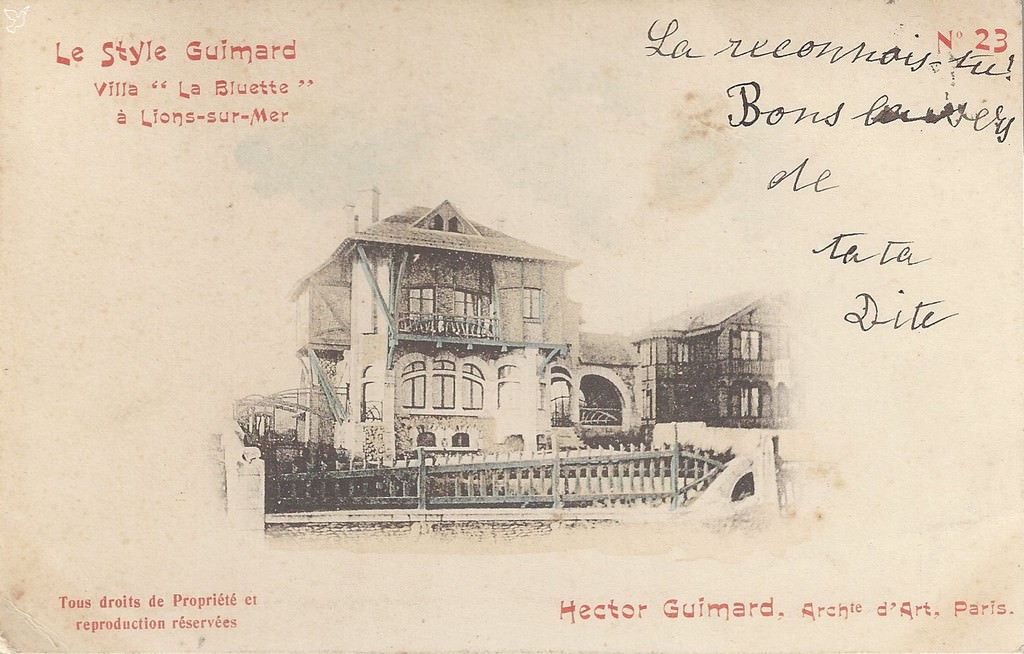 Le Style Guimard
Villa “ La Bluette ”
à Lions-sur-Mer
Nº 23
La reconnais-tu?
Bons baisers
de
tata
Dite
Tous droits de Propriété et
reproduction réservées
Hector Guimard, Archte d'Art, Paris.